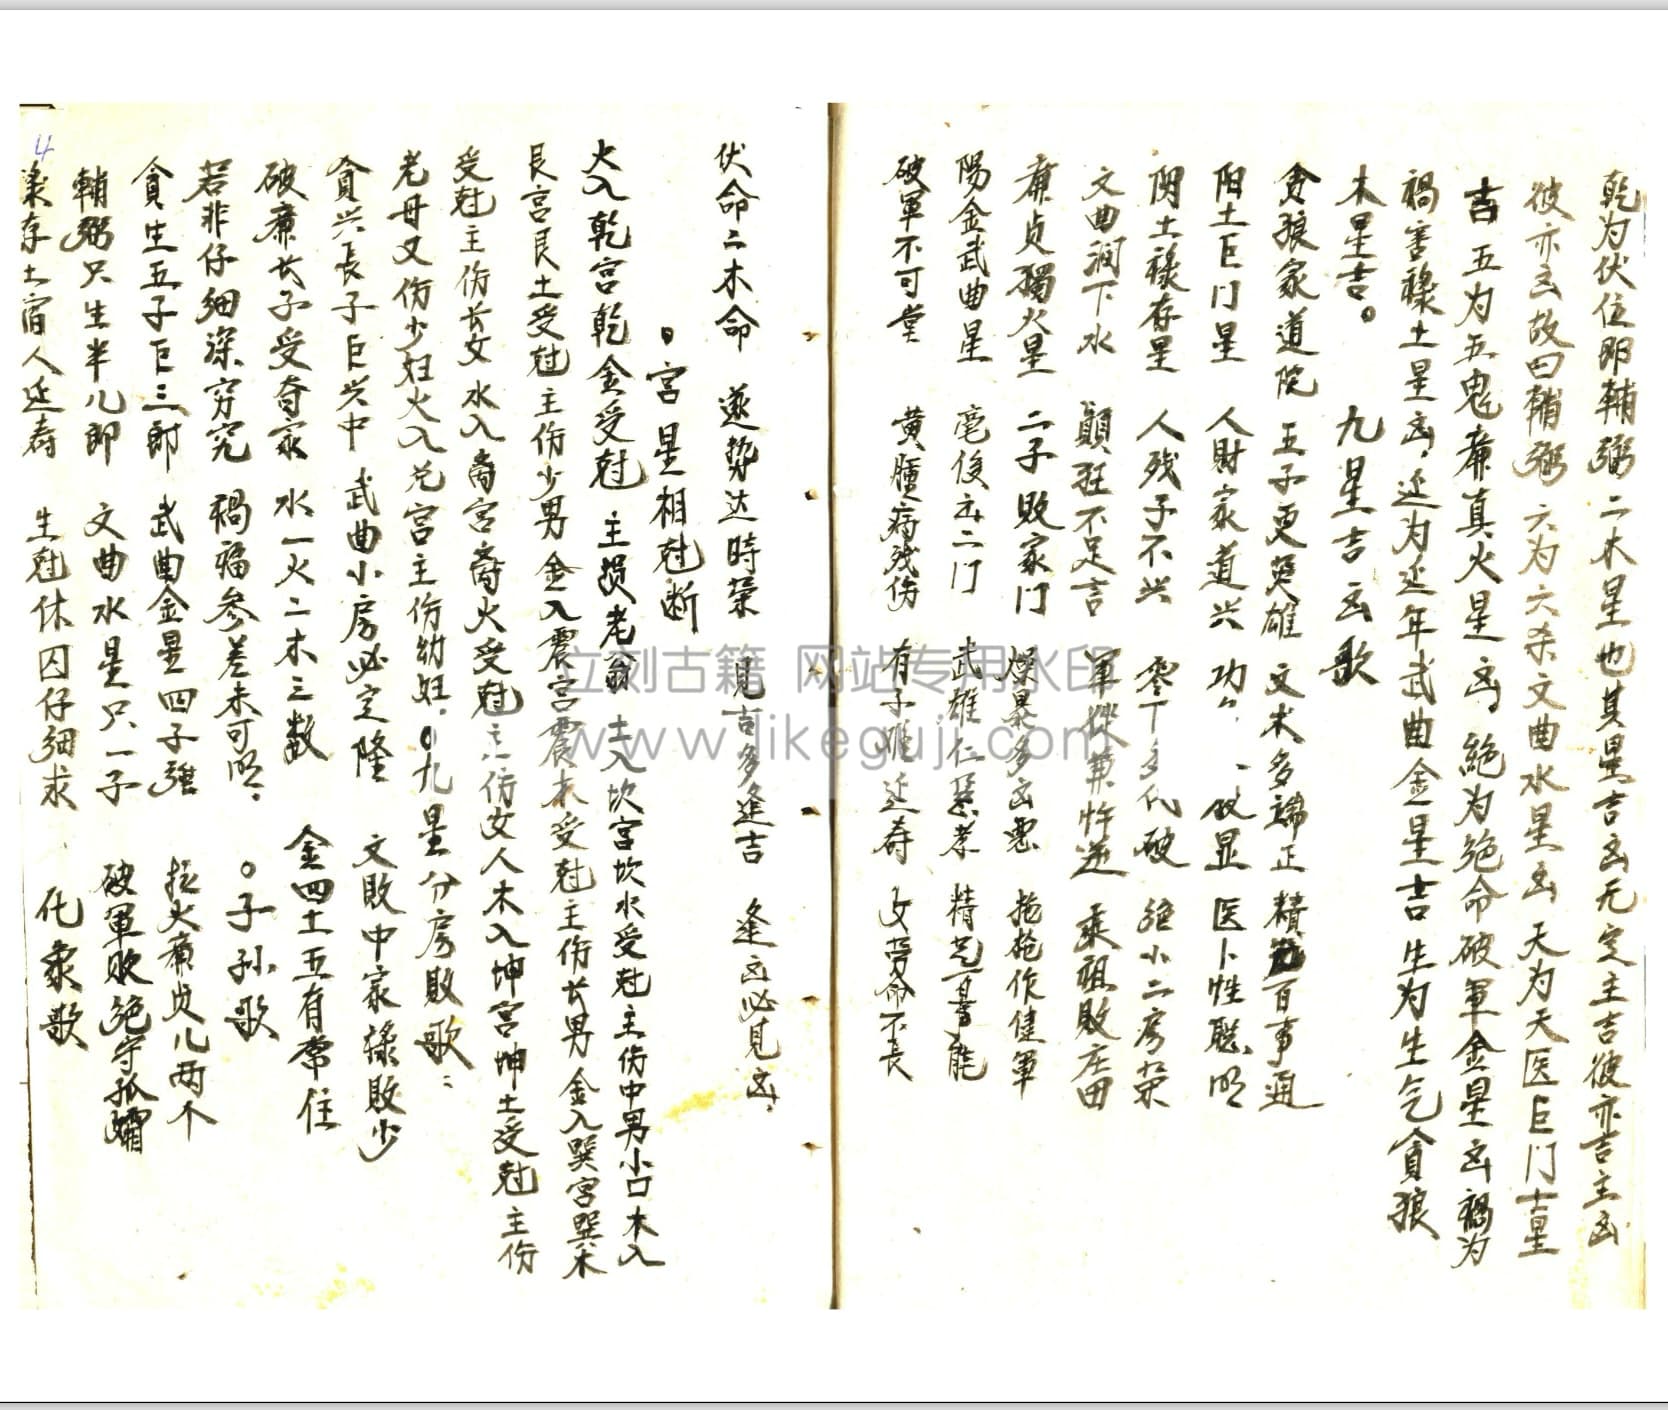 乾为伏位即輔弼二木星也其星吉凶无定主吉彼亦吉主凶
彼亦凶故曰輔弼六为六杀文曲水星凶天为天医巨门土星
吉五为五鬼廉真火星凶絶为绝命破軍金星凶禍为
禍害禄土星凶延为延年武曲金星吉生为生气貪狼
木星吉。
九星吉凶歌
貪狼家道院 五子更英雄 文术多端正 精 百事通
阳土巨门星 人財家道兴 功 显 医卜性聪明
阴土禄存星 人残子不兴 零丁多代破 绝小二房荣
文曲润下水 顛狂不足言 軍 忤逆 乘祖敗庄田
廉貞獨火星 二子败家门 燥暴多凶悪 拖枪作健軍
陽金武曲星 毫俊 二门 武雄仁 孝 精 能
破軍不可堂 黄腫病残伤 有子难延寿 女 命不长
伏命二木命 遂势达時荣 見吉多逢吉 逢凶必見凶
。宮星相尅断
火入乾宮乾金受尅 主損老翁 土入坎宮坎水受尅主伤中男小口木入
艮宮艮土受尅主伤少男金入震宮震木受尅主伤长男金入巽宮巽木
受尅主伤长女水入离宮离火受尅主伤女人木入坤宮坤土受尅主伤
老母又伤少妇火入兑宮主伤幼妇。九星分房敗歌
貪兴長子巨兴中 武曲小房必定隆 文敗中家禄敗少
破廉长子受奇家 水一火二木三数 金四土五有常住
若非仔细深穷究 禍福参差未可明 。子孙歌
貪生五子巨三郎 武曲金星四子強 火廉贞儿两个
輔弼只生半儿郎 文曲水星只一子 破軍敗绝守孤孀
禄存土宿人延寿 生尅休囚仔细求 化象歌
4
立刻古籍 网站专用水印
www.likeguji.com